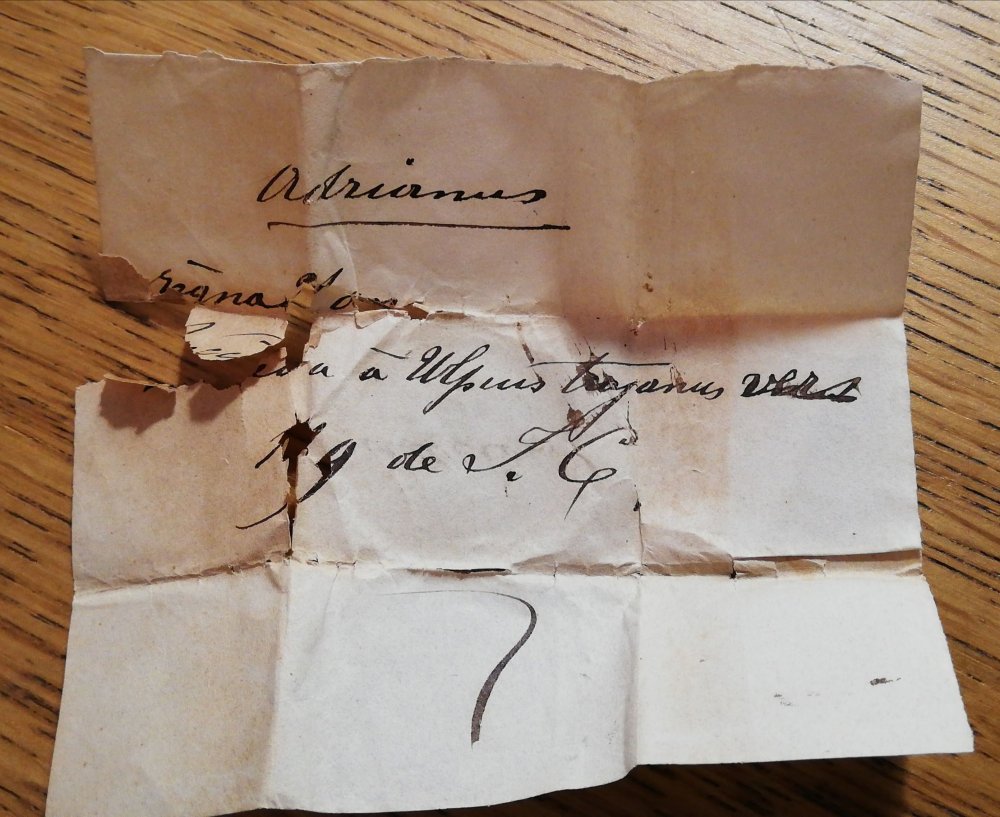 Adrianus
régna
à Ulpius trajanus vers
de J. C.
7